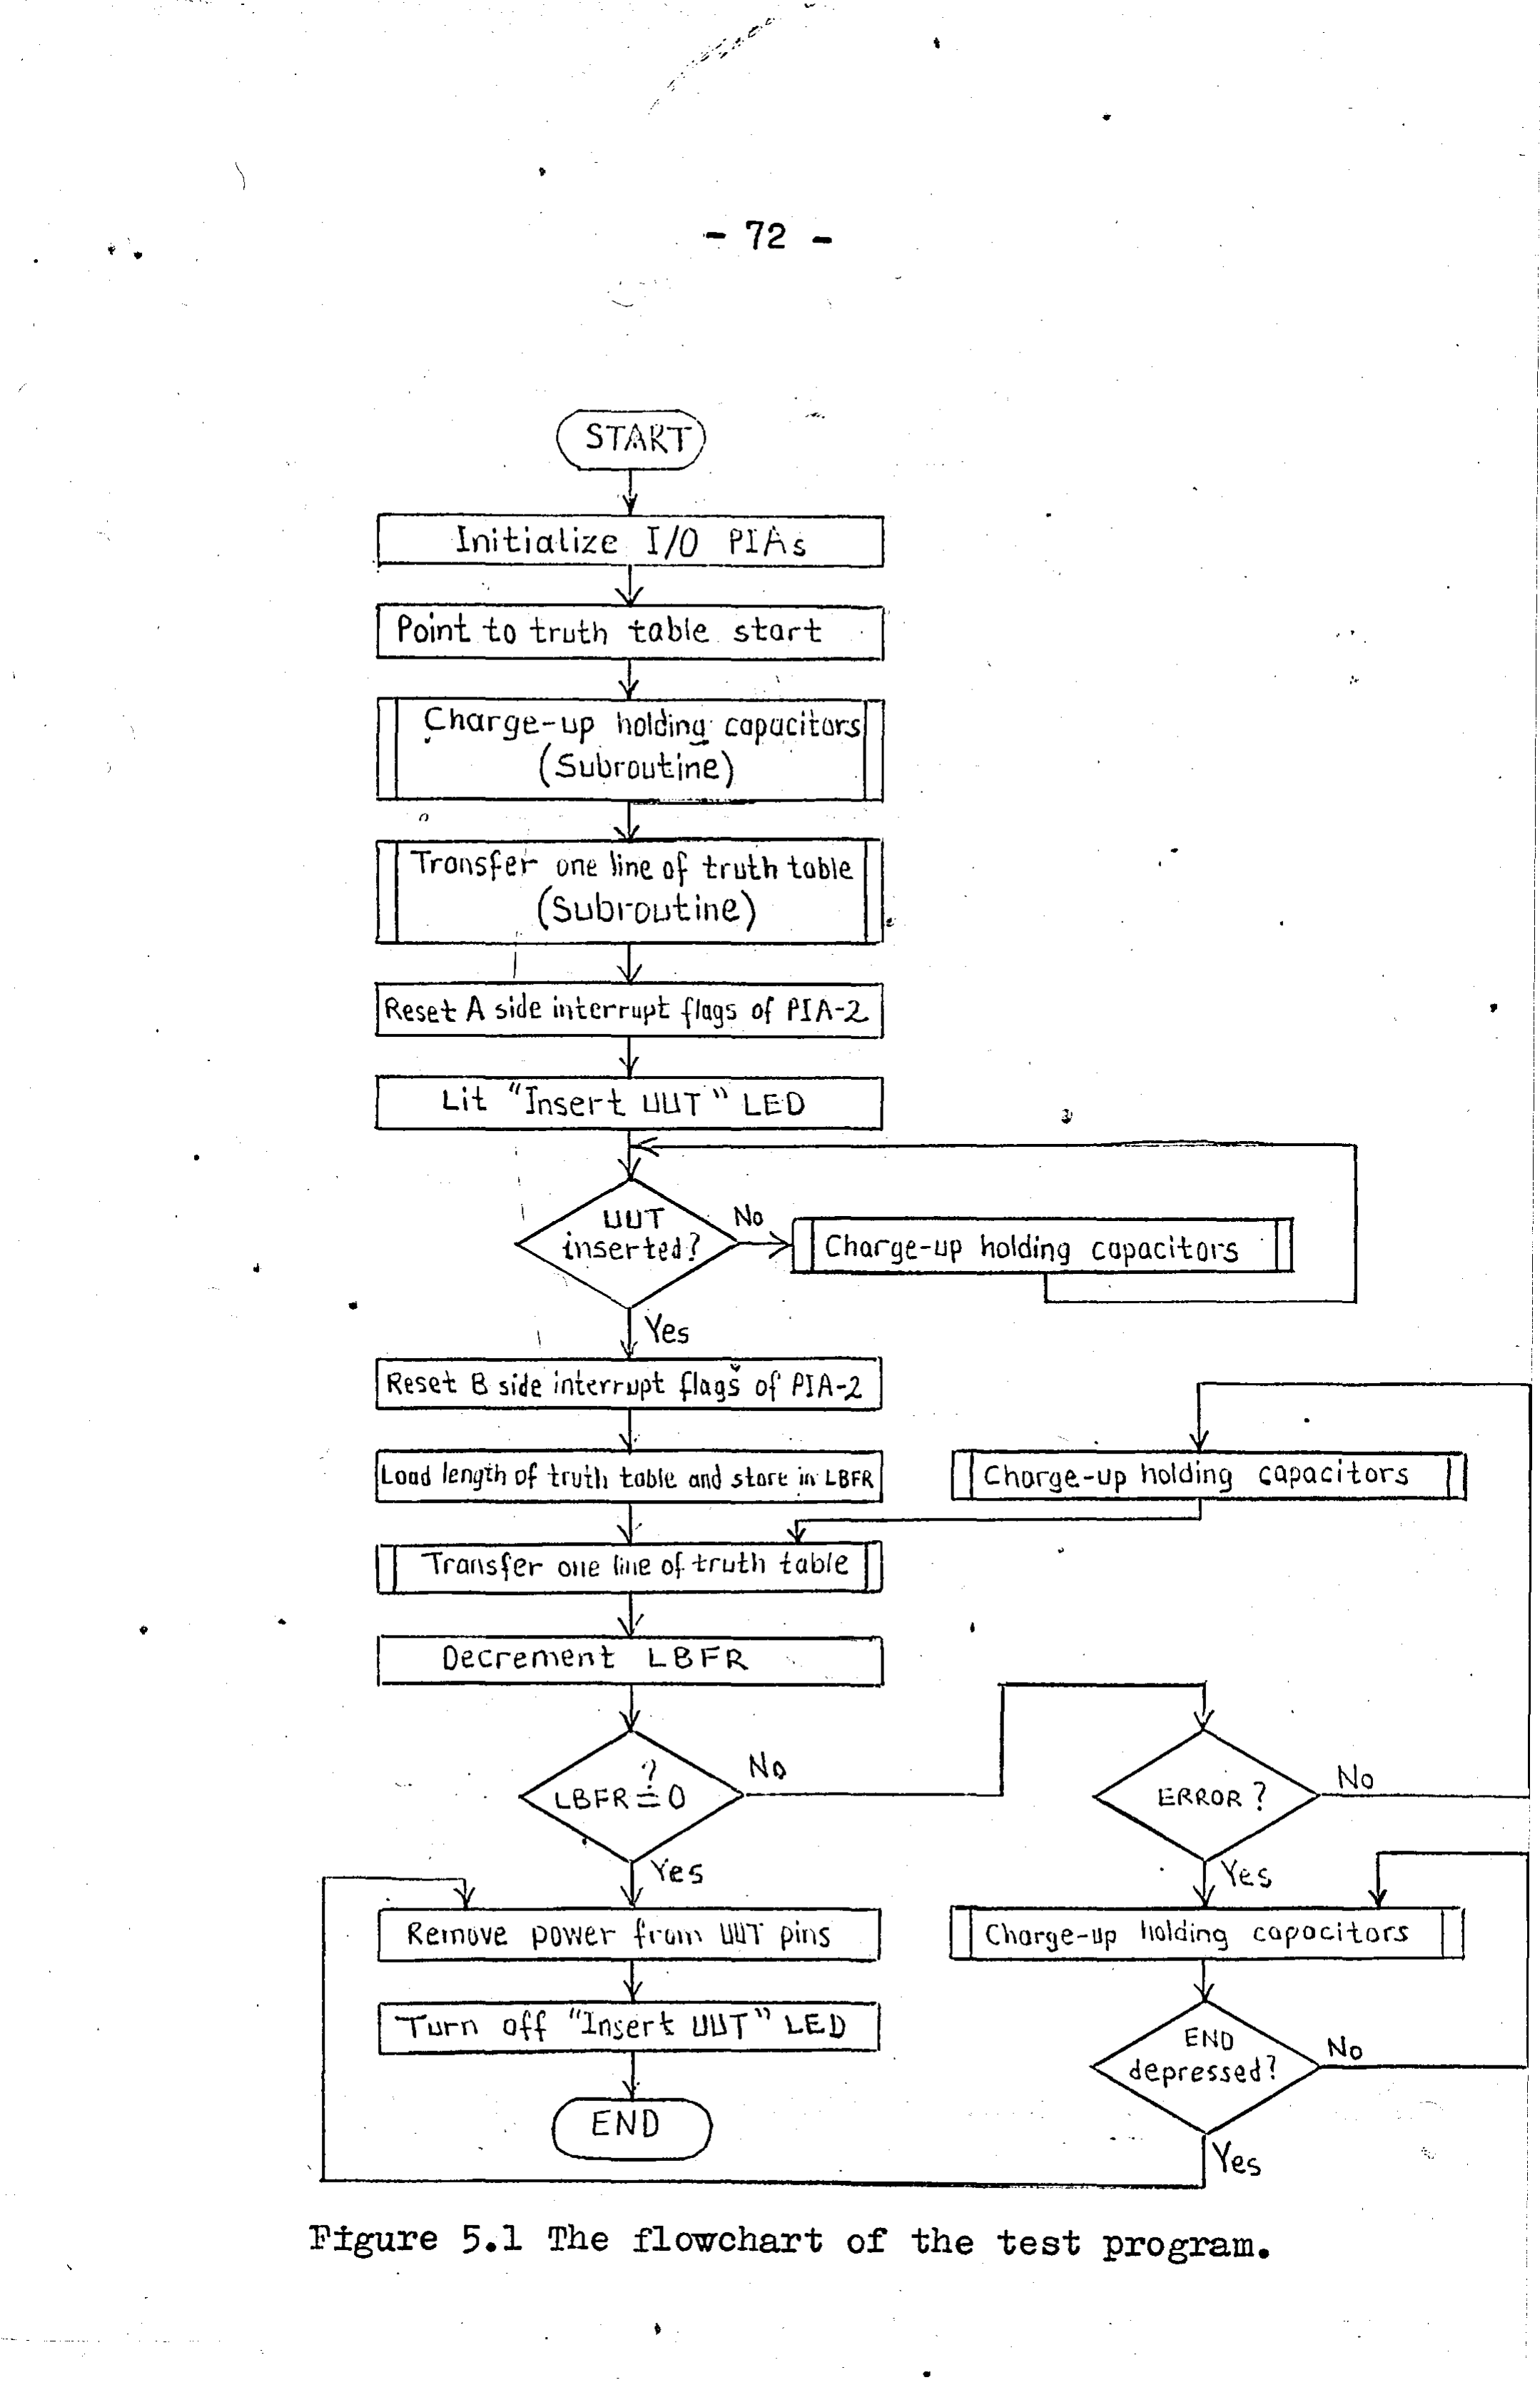 - 72 -
START
Initialize I/O PIAs
Point to truth table start
Charge-up holding capacitors
(Subroutine)
Transfer one line of truth table
(Subroutine)
Reset A side interrupt flags of PIA-2
Lit "Insert UUT" LED
UUT
inserted?
No
Charge-up holding capacitors
Yes
Reset B side interrupt flags of PIA-2
Load length of truth table and store in LBFR
Charge-up holding capacitors
Transfer one line of truth table
Decrement LBFR
?
LBFR = 0
No
ERROR ?
No
Yes
Yes
Remove power from UUT pins
Charge-up holding capacitors
Turn off "Insert UUT" LED
END
depressed?
No
END
Yes
Figure 5.1 The flowchart of the test program.